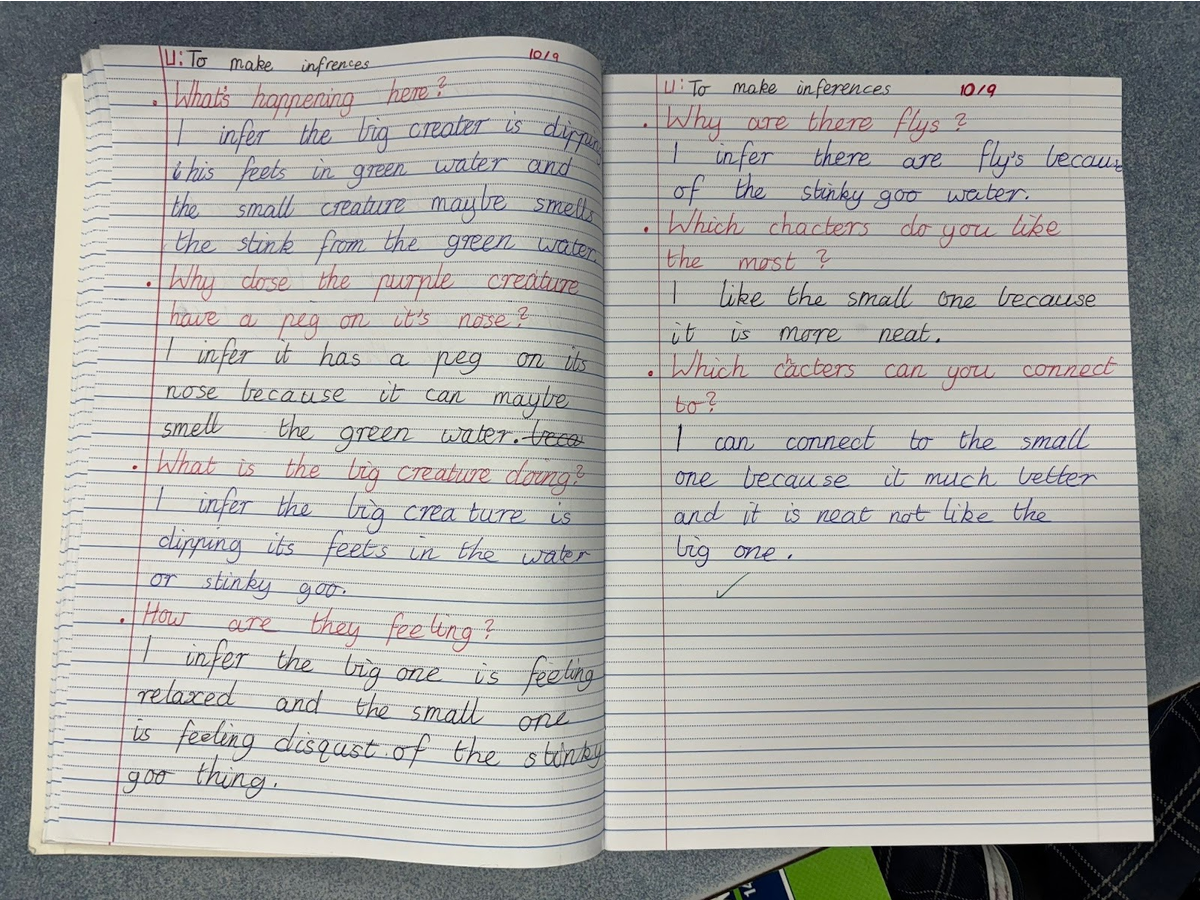 LI: To make infrences 10/9
. What's happening here?
I infer the big creater is dipping
his feets in green water and
the small creature maybe smells
the stink from the green water.
. Why dose the purple creature
have a peg on it's nose?
I infer it has a peg on its
nose because it can maybe
smell the green water. beca
. What is the big creature doing?
I infer the big creature is
dipping its feets in the water
or stinky goo.
. How are they feeling?
I infer the big one is feeling
relaxed and the small one
is feeling disgust of the stinky
goo thing.
LI: To make inferences 10/9
. Why are there flys?
I infer there are fly's because
of the stinky goo water.
. Which chacters do you like
the most?
I like the small one because
it is more neat.
. Which chacters can you connect
to?
I can connect to the small
one because it much better
and it is neat not like the
big one.